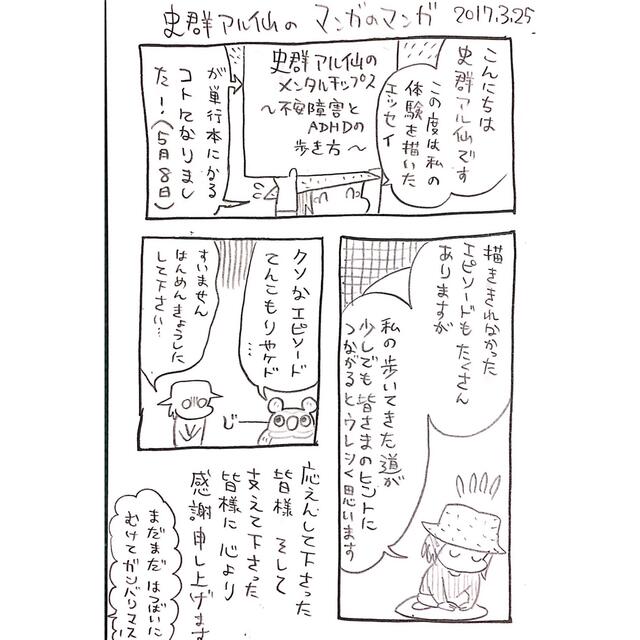 史群アル仙の マンガのマンガ 2017.3.25
こんにちは
史群アル仙です
この度は私の
体験を描いた
エッセイ
史群アル仙の
メンタルチップス
〜不安障害と
ADHDの
歩き方〜
が単行本になる
コトになりまし
た!!(5月8日)
描ききれなかった
エピソードもたくさん
ありますが
私の歩いてきた道が
少しでも皆さまのヒントに
つながるとウレシく思います
クソなエピソード
てんこもりやケド
…
じー
すいません
はんめんきょうしに
して下さい…
応えんして下さった
皆様 そして
支えて下さった
皆様に心より
感謝申し上げます
まだまだ はつばいに
むけてガンバリマス